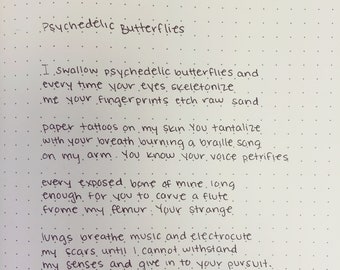 Psychedelic Butterflies
I swallow psychedelic butterflies and
every time your eyes skeletonize
me your fingerprints etch raw sand
paper tattoos on my skin. You tantalize
with your breath burning a braille song
on my arm. You know your voice petrifies
every exposed bone of mine, long
enough for you to carve a flute
frome my femur. Your strange
lungs breathe music and electrocute
my scars until I cannot withstand
my senses and give in to your pursuit.